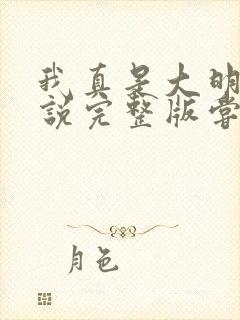 我真是大明
说完整版常
月色